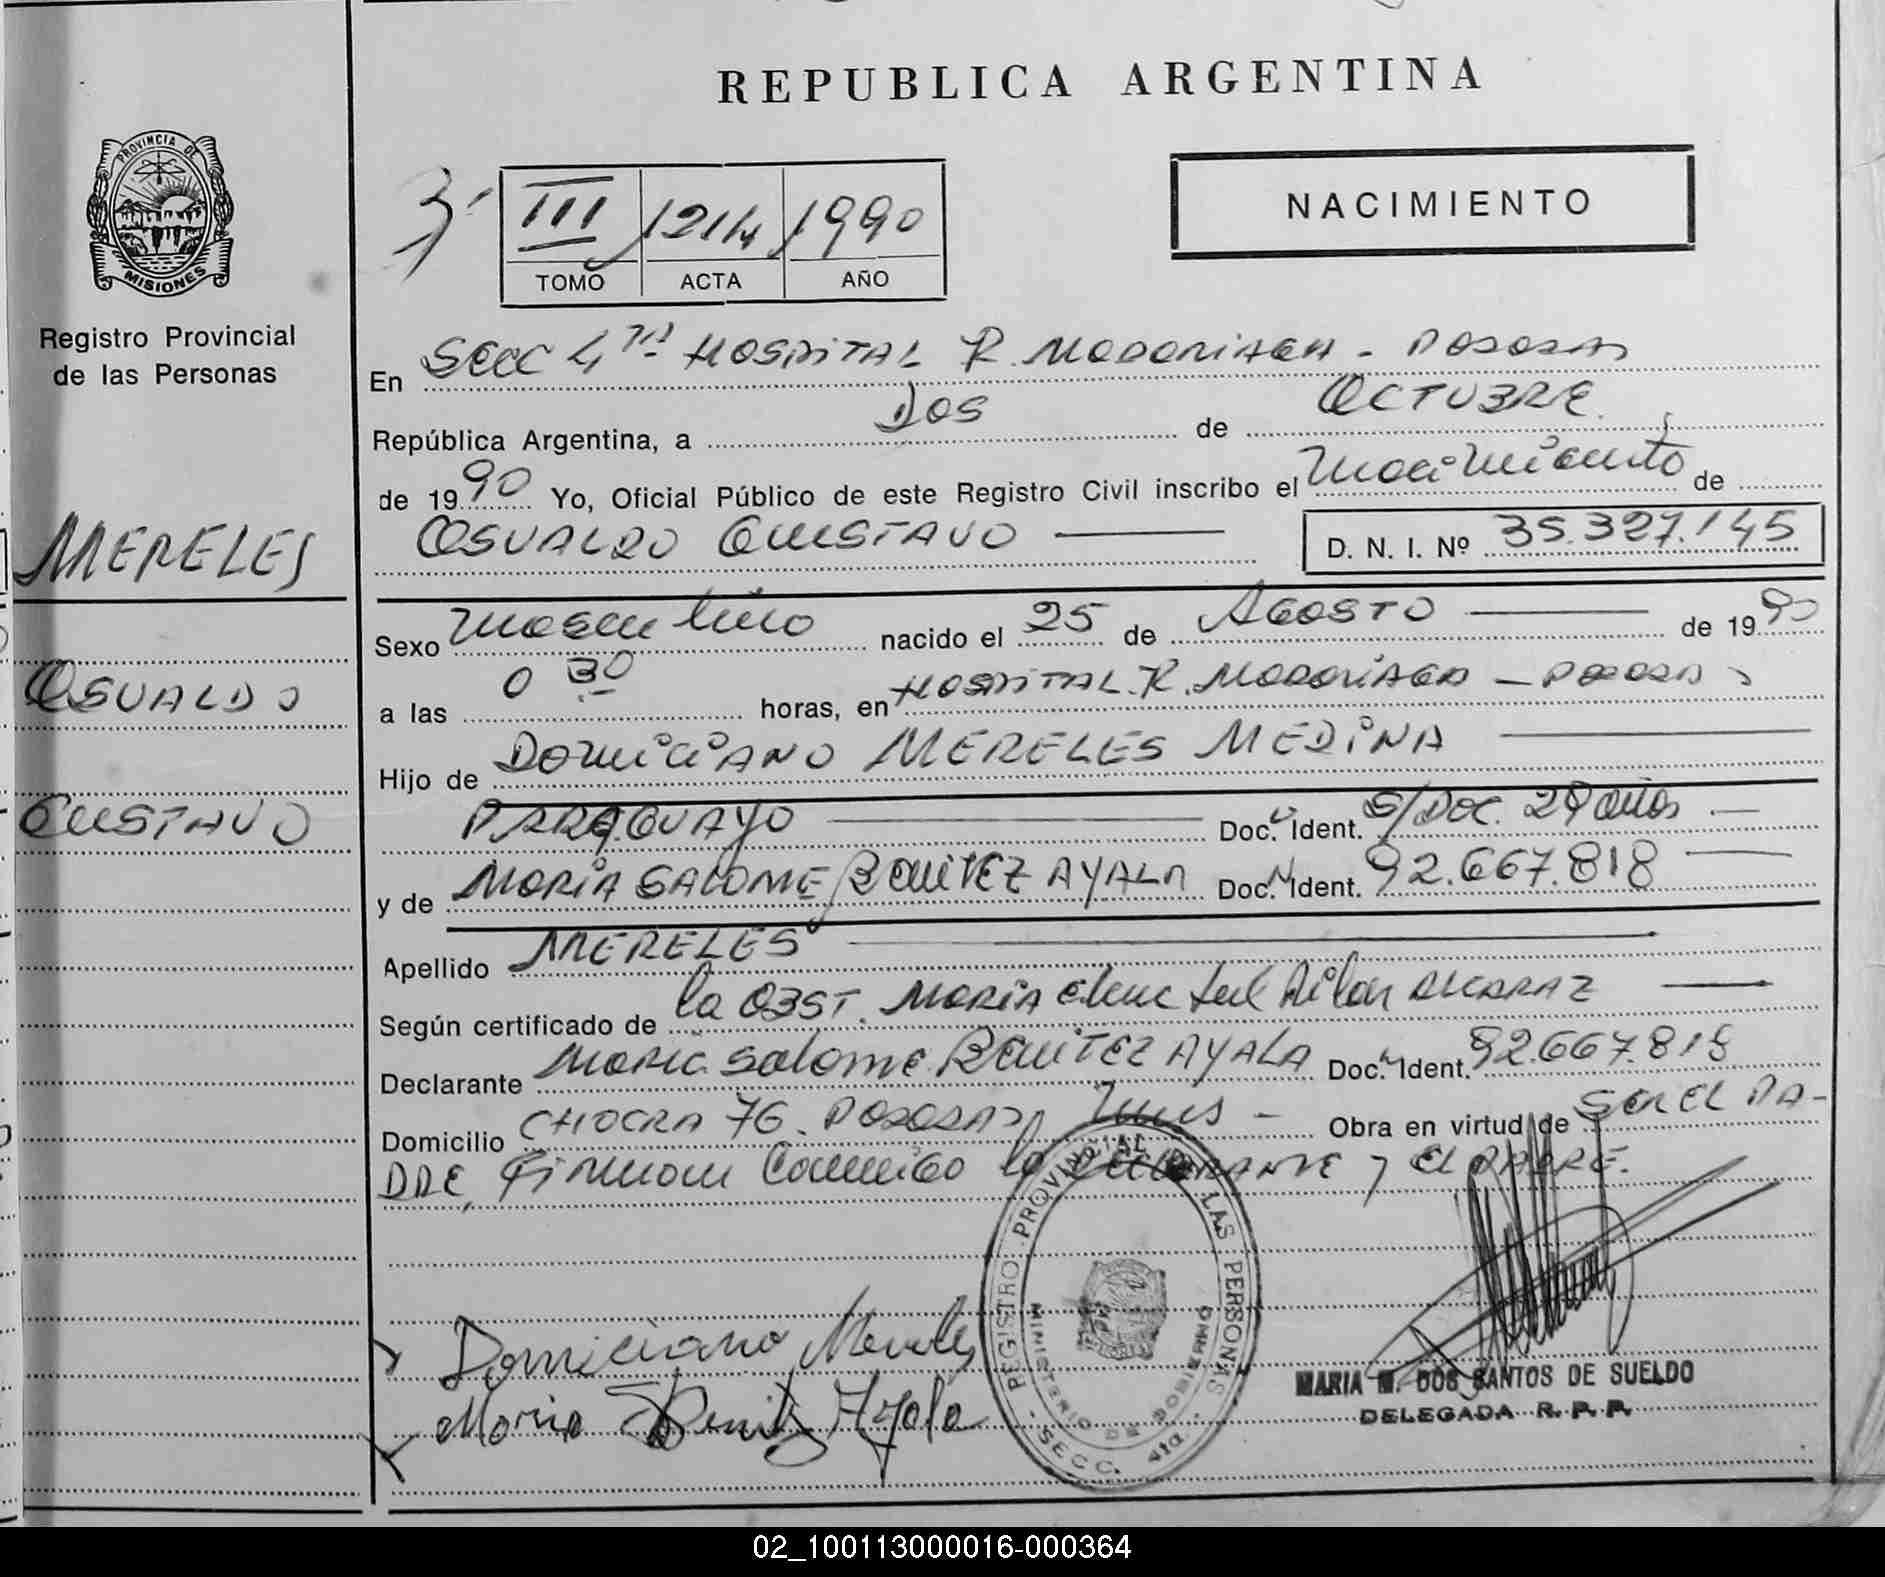 REPUBLICA ARGENTINA
PROVINCIA DE
MISIONES
Registro Provincial
de las Personas
III 1214 1990
TOMO ACTA AÑO
NACIMIENTO
En SECC 4TA HOSPITAL R. MADARIAGA - POSADAS
República Argentina, a DOS de OCTUBRE
de 1990 Yo, Oficial Público de este Registro Civil inscribo el Nacimiento de
OSVALDO GUSTAVO D. N. I. Nº 35.327.145
MERELES
OSVALDO
GUSTAVO
Sexo masculino nacido el 25 de AGOSTO de 1990
a las 0 30 horas, en HOSPITAL R. MADARIAGA - POSADAS
Hijo de DOMICIANO MERELES MEDINA
PARAGUAYO Doc. Ident. S/DOC. 29 años
y de MARIA SALOME BENITEZ AYALA Doc. Ident. 92.667.818
Apellido MERELES
Según certificado de la OBST. MARIA del Pilar ALCARAZ
Declarante MARIA Salome BENITEZ AYALA Doc. Ident. 92.667.818
Domicilio CHACRA 76. POSADAS Mnes - Obra en virtud de SER EL PA-
DRE, Firman Conmigo la DECLARANTE y EL PADRE.
REGISTRO PROVINCIAL DE LAS PERSONAS
MINISTERIO DE GOBIERNO
SECC. 4ta.
Domiciano Mereles
Maria S Benitez Ayala
MARIA M. DOS SANTOS DE SUELDO
DELEGADA R. P. P.
02_100113000016-000364